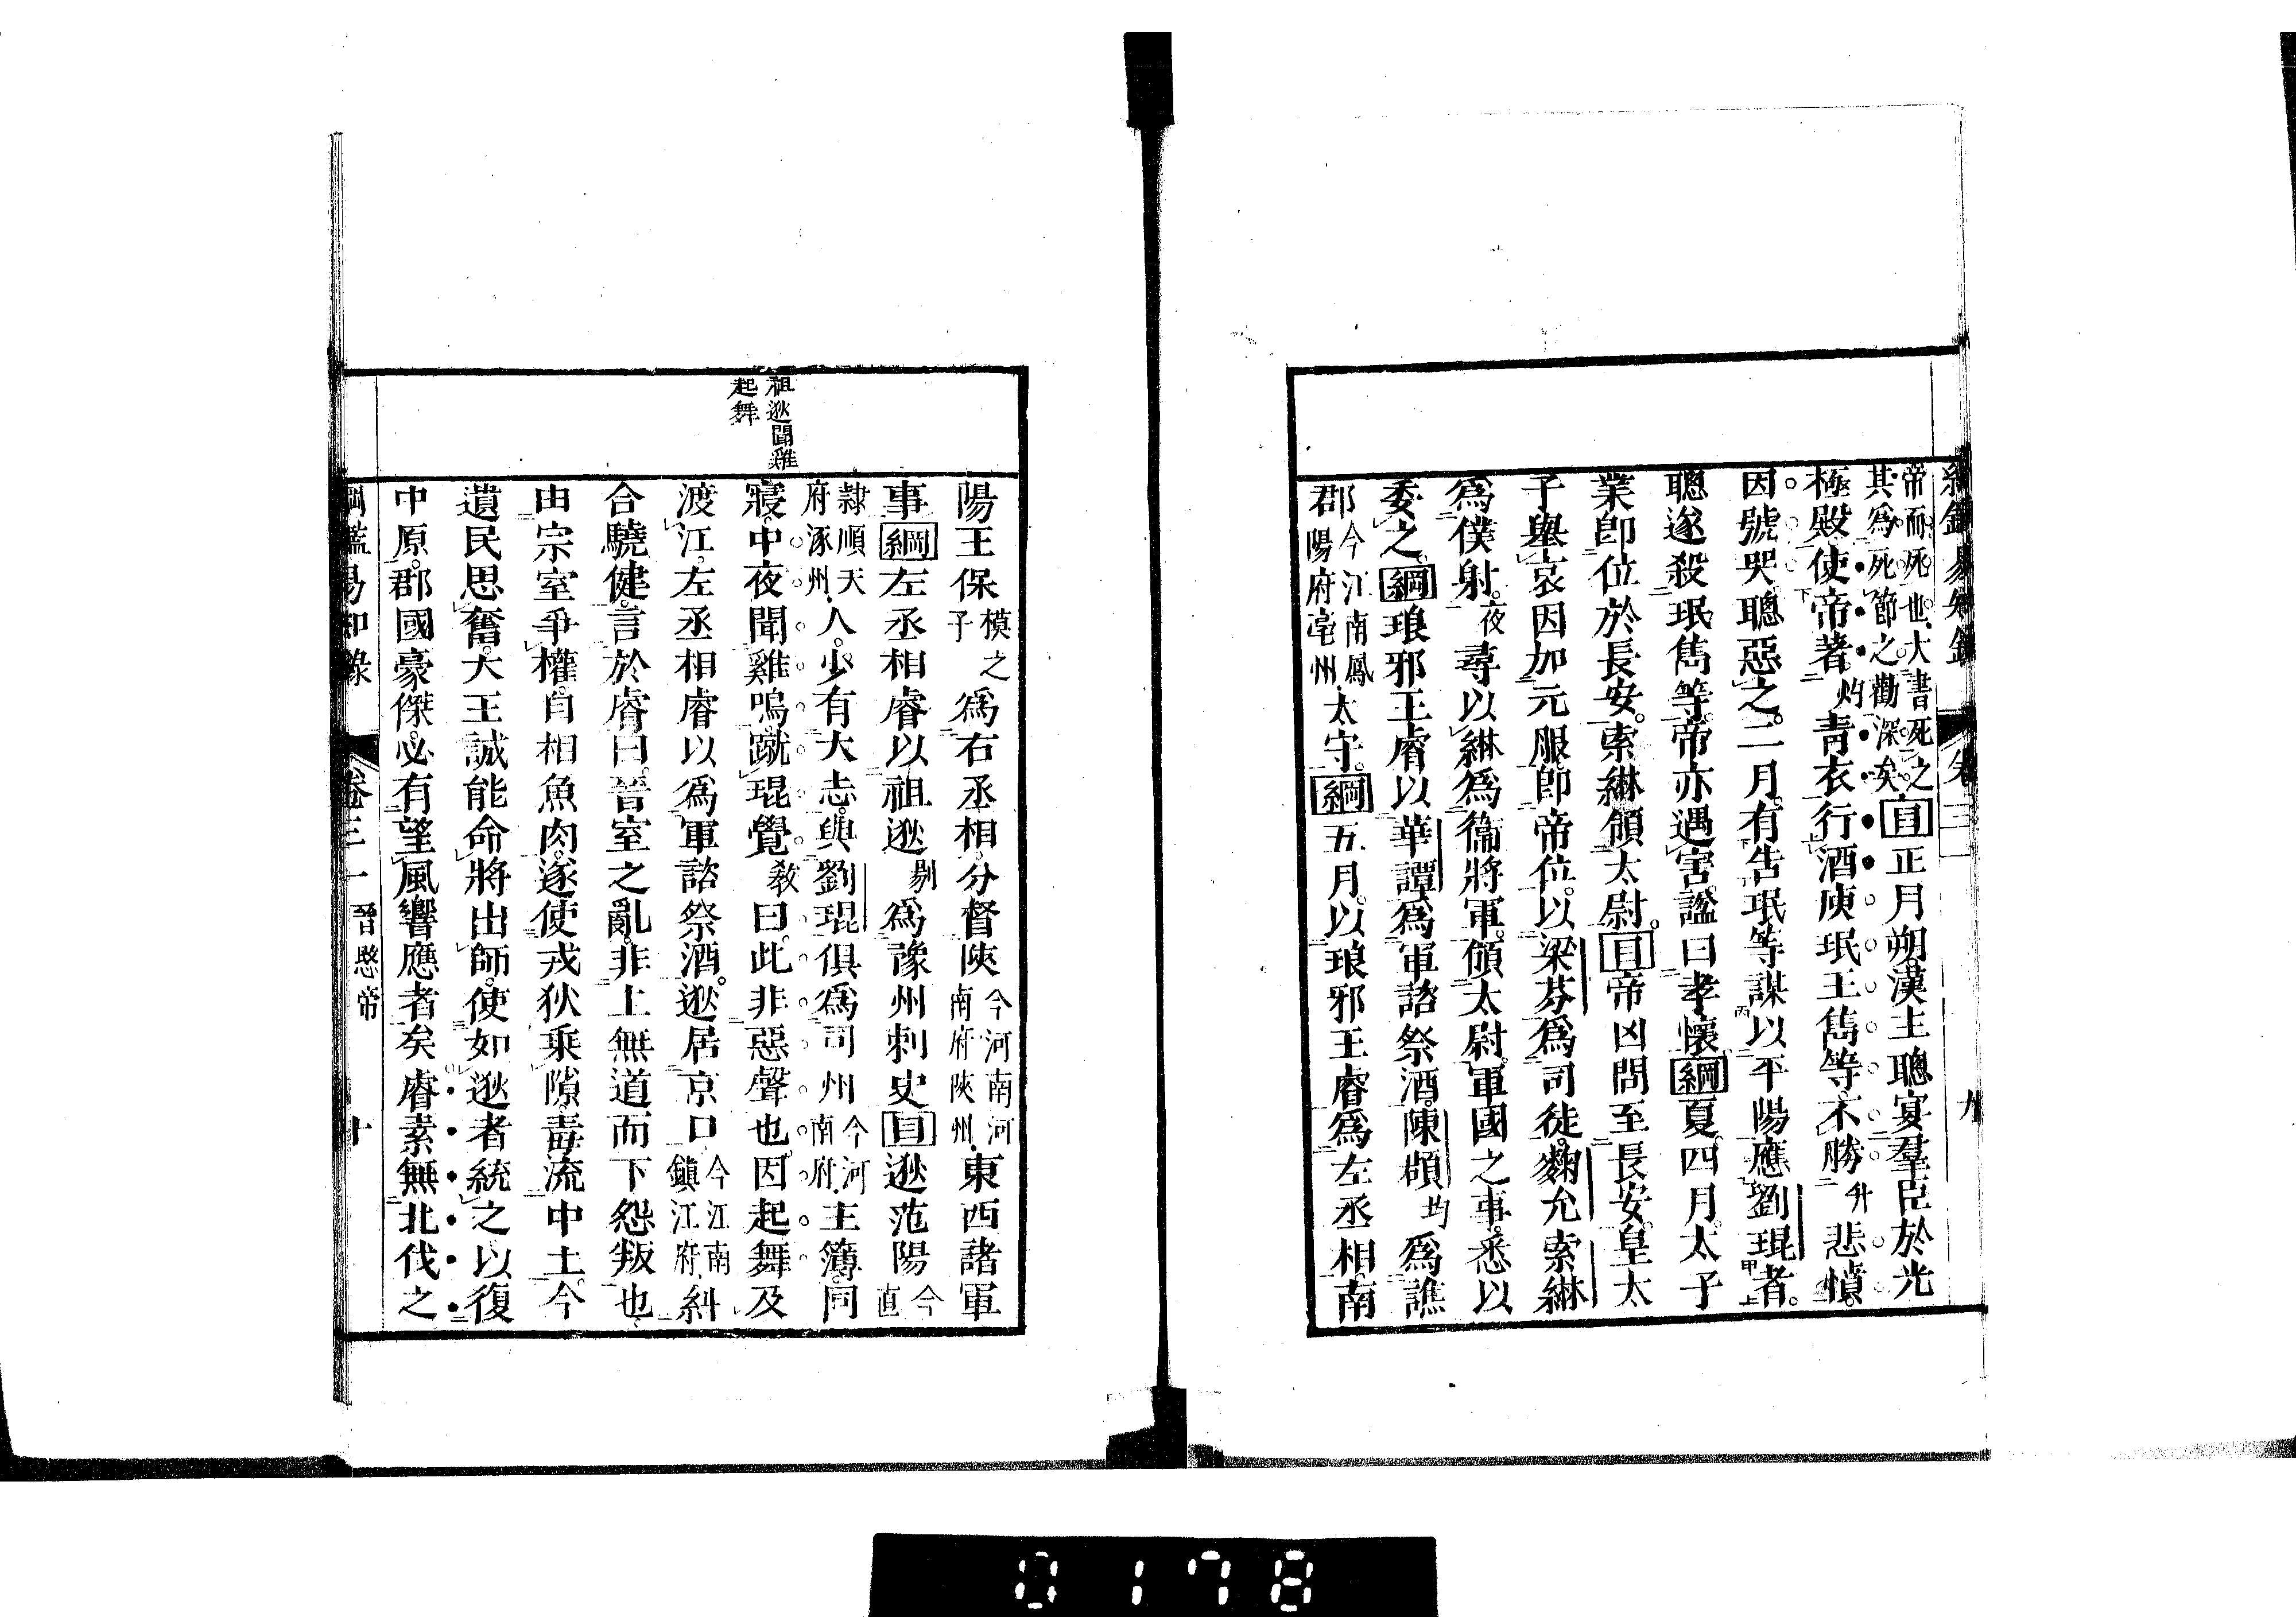 綱鑑易知錄 卷三一 九
帝而死也大書死之
其為死節之勸深矣目正月朔漢主聰宴羣臣於光
極殿使帝著灼青衣行酒庾珉王雋等不勝升悲憤
因號哭聰惡之二月有告珉等謀以平陽應劉琨者
聰遂殺珉雋等帝亦遇害謚曰孝懷綱夏四月太子
業卽位於長安索綝領太尉目帝凶問至長安皇太
子舉哀因加元服卽帝位以梁芬爲司徒麴允索綝
爲僕射夜尋以綝爲衞將軍領太尉軍國之事悉以
委之綱琅邪王睿以華譚爲軍諮祭酒陳頵均爲譙
郡今江南鳳陽府亳州太守綱五月以琅邪王睿爲左丞相南
陽王保模之子爲右丞相分督陝今河南河南府陝州東西諸軍
事綱左丞相睿以祖逖剔爲豫州刺史目逖范陽今直
隸順天府涿州人少有大志與劉琨俱爲司州今河南府主簿同
寢中夜聞雞鳴蹴琨覺教曰此非惡聲也因起舞及
渡江左丞相睿以爲軍諮祭酒逖居京口今江南鎮江府糾
合驍健言於睿曰晉室之亂非上無道而下怨叛也
由宗室爭權自相魚肉遂使戎狄乘隙毒流中土今
遺民思奮大王誠能命將出師使如逖者統之以復
中原郡國豪傑必有望風響應者矣睿素無北伐之
祖逖聞雞
起舞
綱鑑易知錄 卷三一 晉愍帝 十
0178